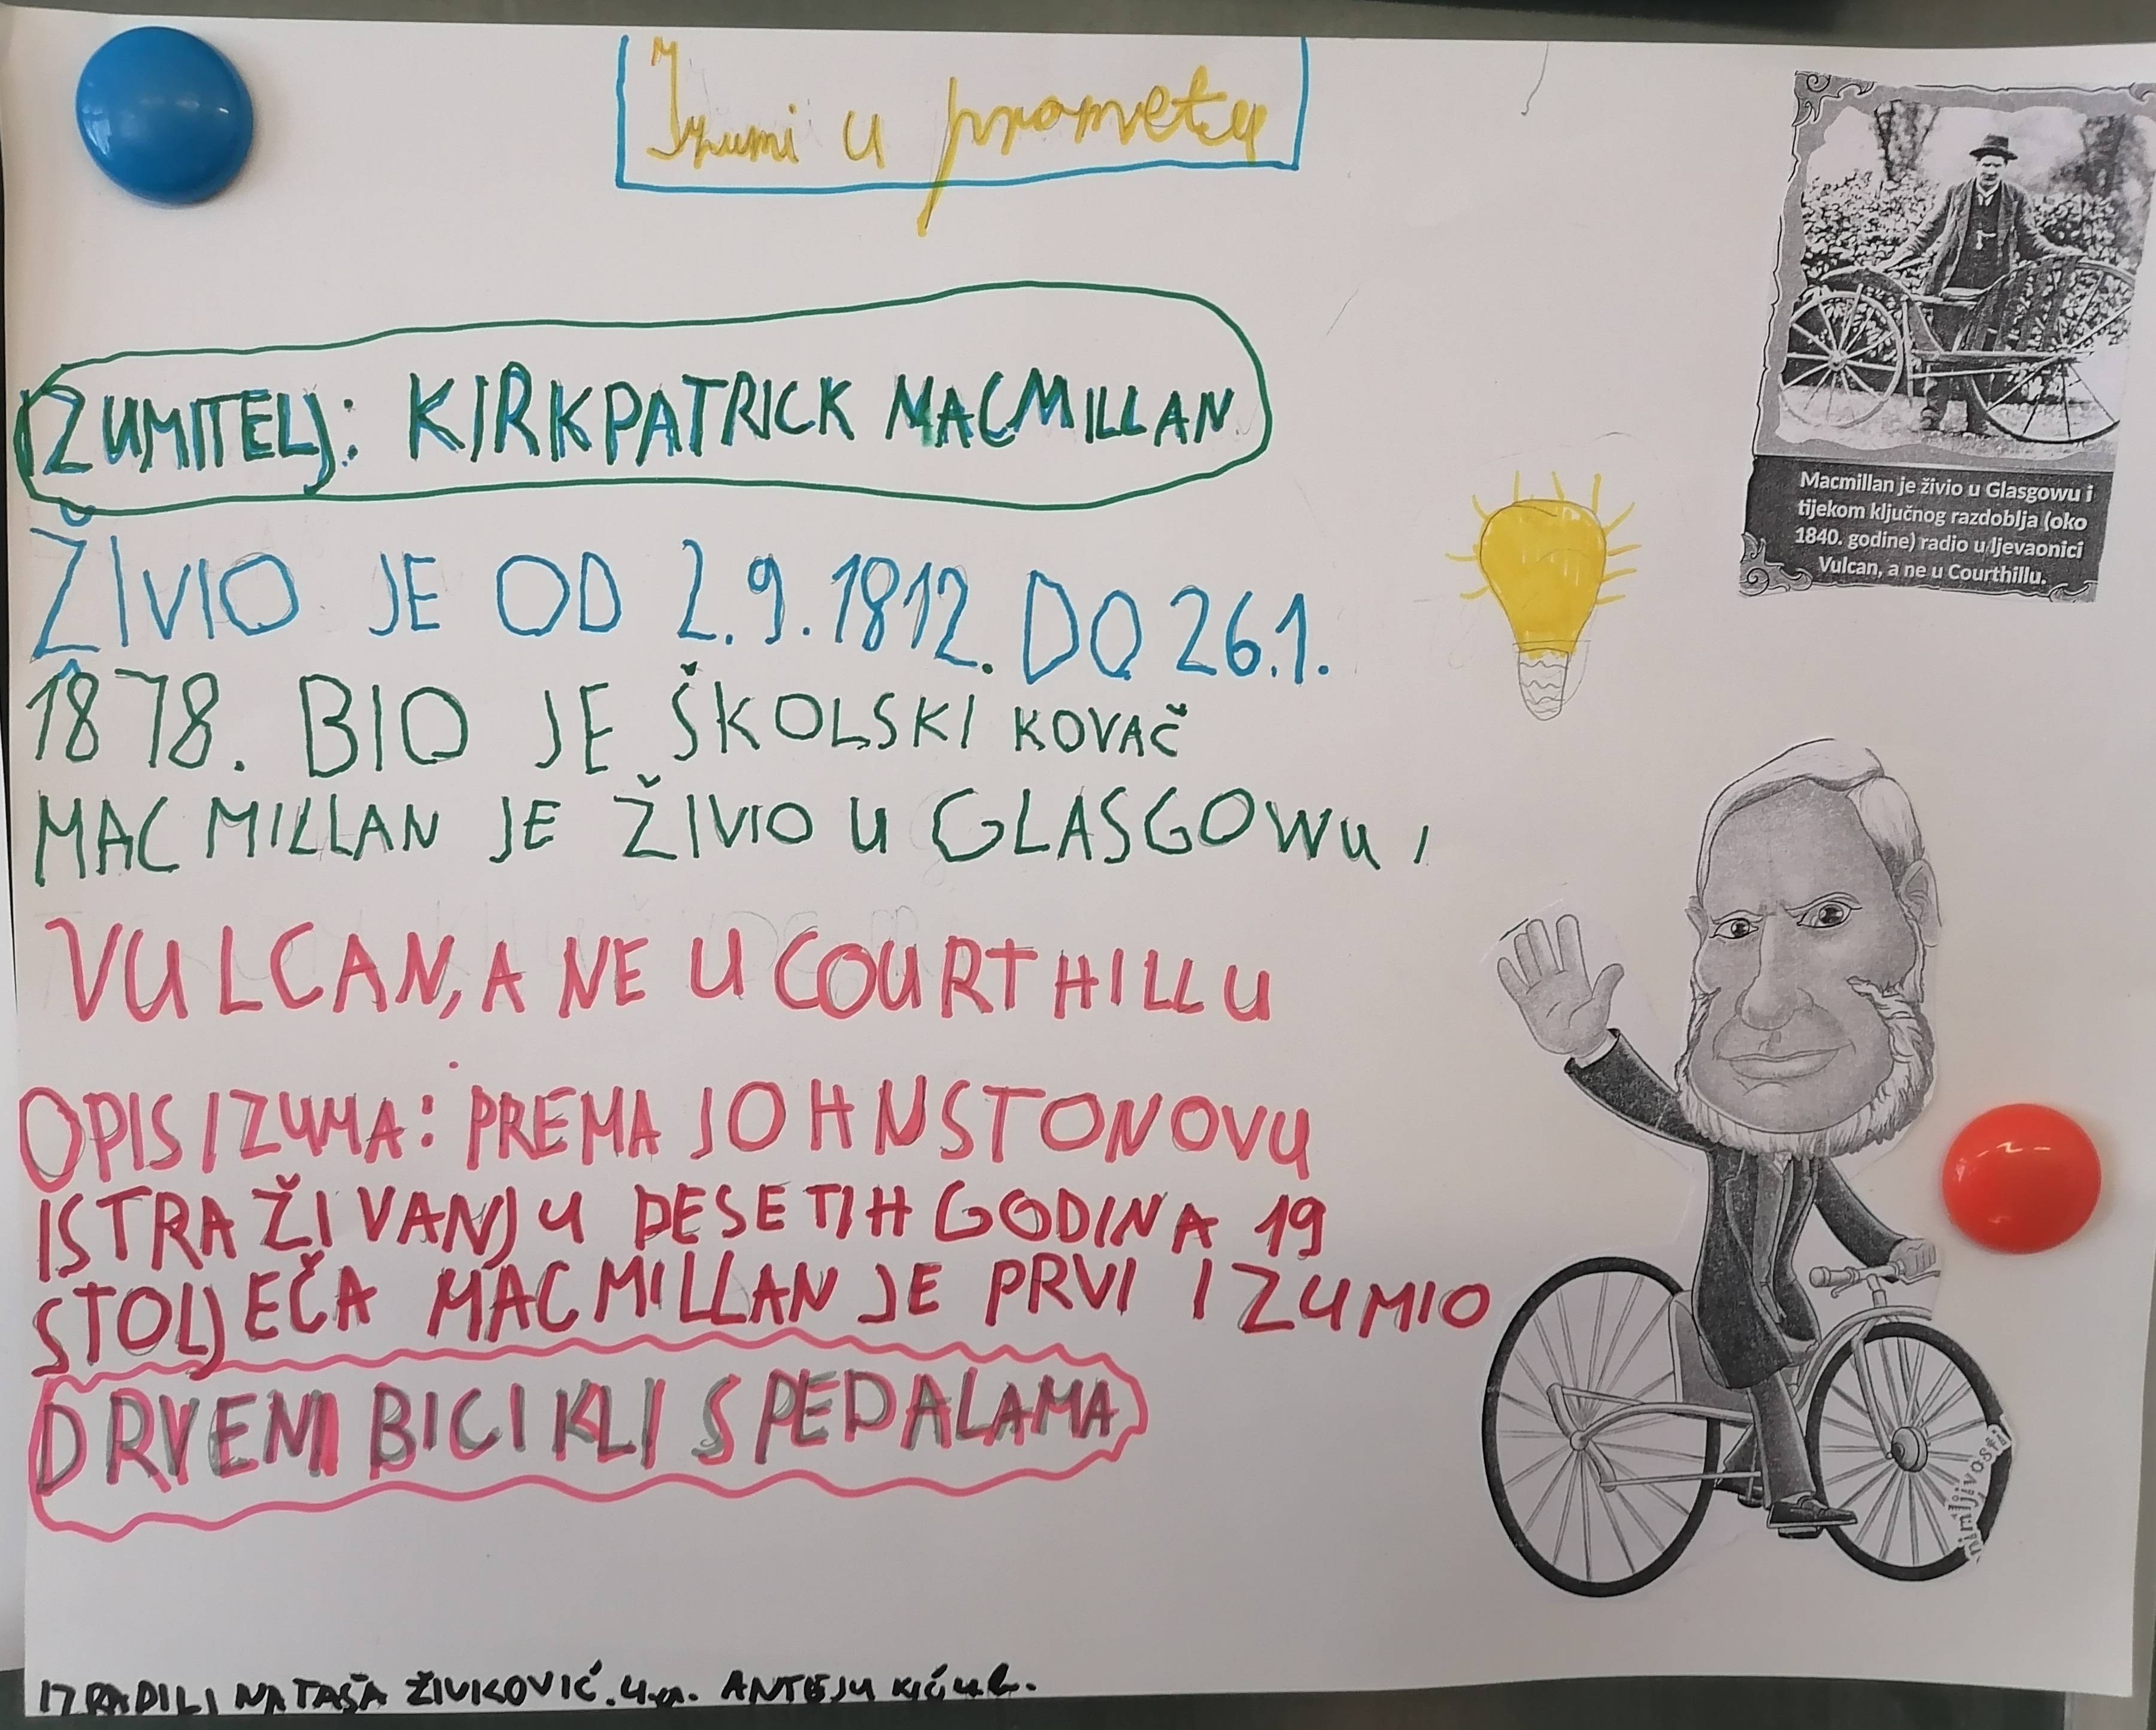 Izumi u prometu
IZUMITELJ: KIRKPATRICK MACMILLAN
ŽIVIO JE OD 2.9.1812. DO 26.1.
1878. BIO JE ŠKOLSKI KOVAČ
MACMILLAN JE ŽIVIO U GLASGOWU I
VULCAN, A NE U COURTHILLU
OPIS IZUMA: PREMA JOHNSTONOVU
ISTRAŽIVANJU DESETIH GODINA 19
STOLJEČA MACMILLAN JE PRVI IZUMIO
DRVENI BICIKLI S PEDALAMA
IZRADILI NATAŠA ŽIVKOVIĆ. 4.a. ANTE
Macmillan je živio u Glasgowu i
tijekom ključnog razdoblja (oko
1840. godine) radio u ljevaonici
Vulcan, a ne u Courthillu.
nimljivosti